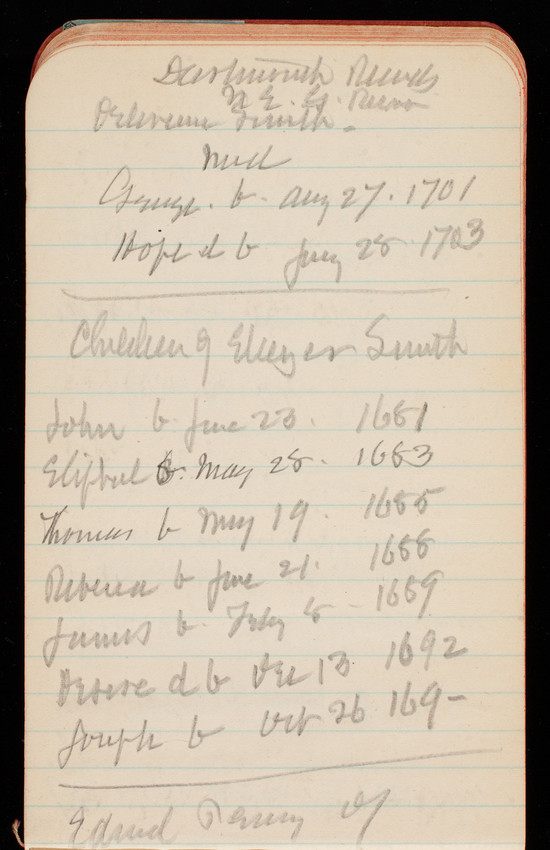 Dartmouth Records
N. E. G. Recor
Deliverance Smith -
Med
George . b. Aug 27 . 1701
Hope d b July 28 1703
Children of Eleazer Smith
John b June 23 . 1681
Elifbal b. May 28 . 1683
Thomas b May 19 . 1685
Rebecca b June 21 . 1688
James b. Feby 8 - 1689
Desire d b Dec 13 1692
Joseph b Oct 26 169-